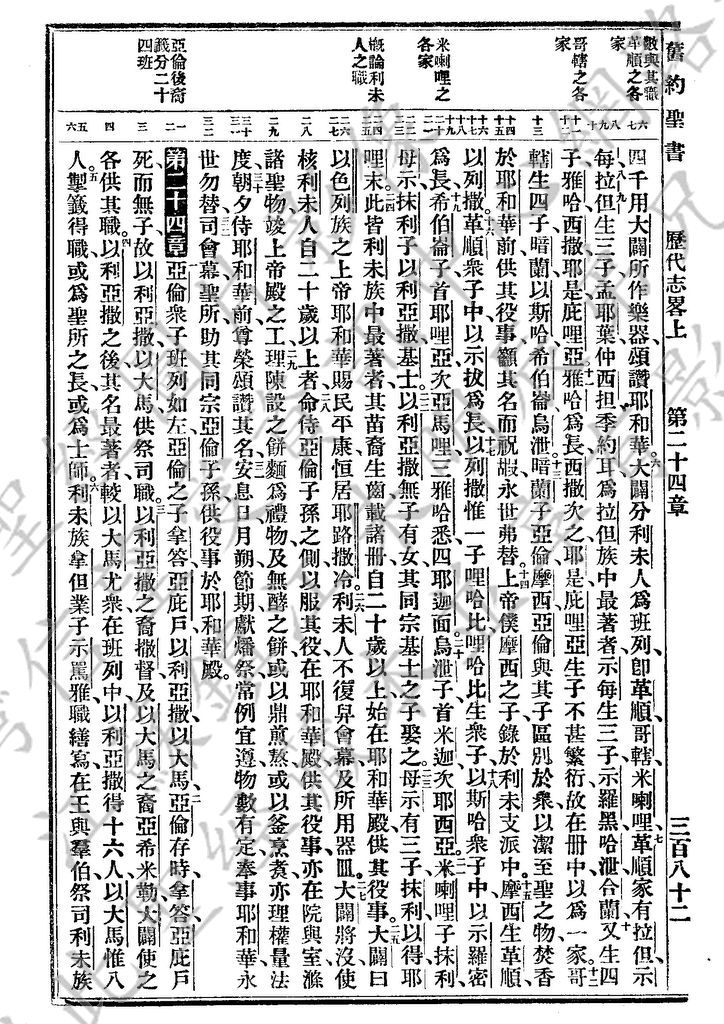 舊約聖書 歷代志畧上 第二十四章 三百八十二
數與其職
革順之各
家
哥轄之各
家
米喇哩之
各家
概論利未
人之職
亞倫後裔
籤分二十
四班
四千用大闢所作樂器頌讚耶和華大闢分利未人爲班列卽革順哥轄米喇哩革順家有拉但示
每拉但生三子孟耶葉仲西担季約耳爲拉但族中最著者示每生三子示羅黑哈泄合蘭又生四
子雅哈西撒耶是庇哩亞雅哈爲長西撒次之耶是庇哩亞生子不甚繁衍故在册中以爲一家哥
轄生四子暗蘭以斯哈希伯崙烏泄暗蘭子亞倫摩西亞倫與其子區別於衆以潔至聖之物焚香
於耶和華前供其役事籲其名而祝嘏永世弗替上帝僕摩西之子錄於利未支派中摩西生革順
以列撒革順衆子中以示拔爲長以列撒惟一子哩哈比哩哈比生衆子以斯哈衆子中以示羅密
爲長希伯崙子首耶哩亞次亞馬哩三雅哈悉四耶迦面烏泄子首米迦次耶西亞米喇哩子抹利
母示抹利子以利亞撒基士以利亞撒無子有女其同宗基士之子娶之母示有三子抹利以得耶
哩末此皆利未族中最著者其苗裔生齒載諸冊自二十歲以上始在耶和華殿供其役事大闢曰
以色列族之上帝耶和華賜民平康恒居耶路撒冷利未人不復舁會幕及所用器皿大闢將沒使
核利未人自二十歲以上者命侍亞倫子孫之側以服其役在耶和華殿供其役事亦在院與室滌
諸聖物竣上帝殿之工理陳設之餅麵爲禮物及無酵之餅或以鼎煎熬或以釜烹煮亦理權量法
度朝夕侍耶和華前尊榮頌讚其名安息日月朔節期獻燔祭常例宜遵物數有定奉事耶和華永
世勿替司會幕聖所助其同宗亞倫子孫供役事於耶和華殿
第二十四章 亞倫衆子班列如左亞倫之子拿答亞庇戶以利亞撒以大馬亞倫存時拿答亞庇戶
死而無子故以利亞撒以大馬供祭司職以利亞撒之裔撒督及以大馬之裔亞希米勒大闢使之
各供其職以利亞撒之後其名最著者較以大馬尤衆在班列中以利亞撒得十六人以大馬惟八
人掣籤得職或爲聖所之長或爲士師利未族拿但業子示罵雅職繕寫在王與羣伯祭司利未族